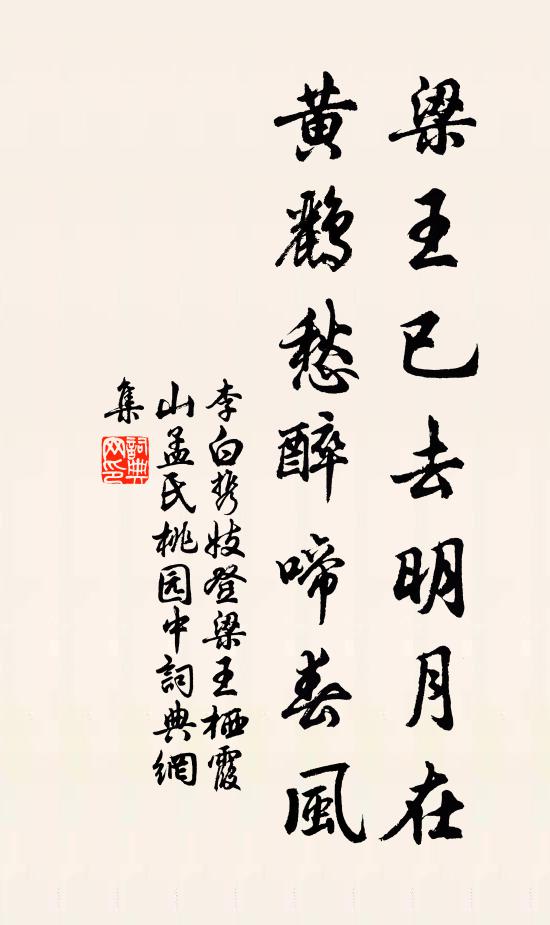 梁王已去明月在
黄鸝愁醉啼春風
李白携妓登梁王栖霞
山孟氏桃园中詞典網
集
詞典網印